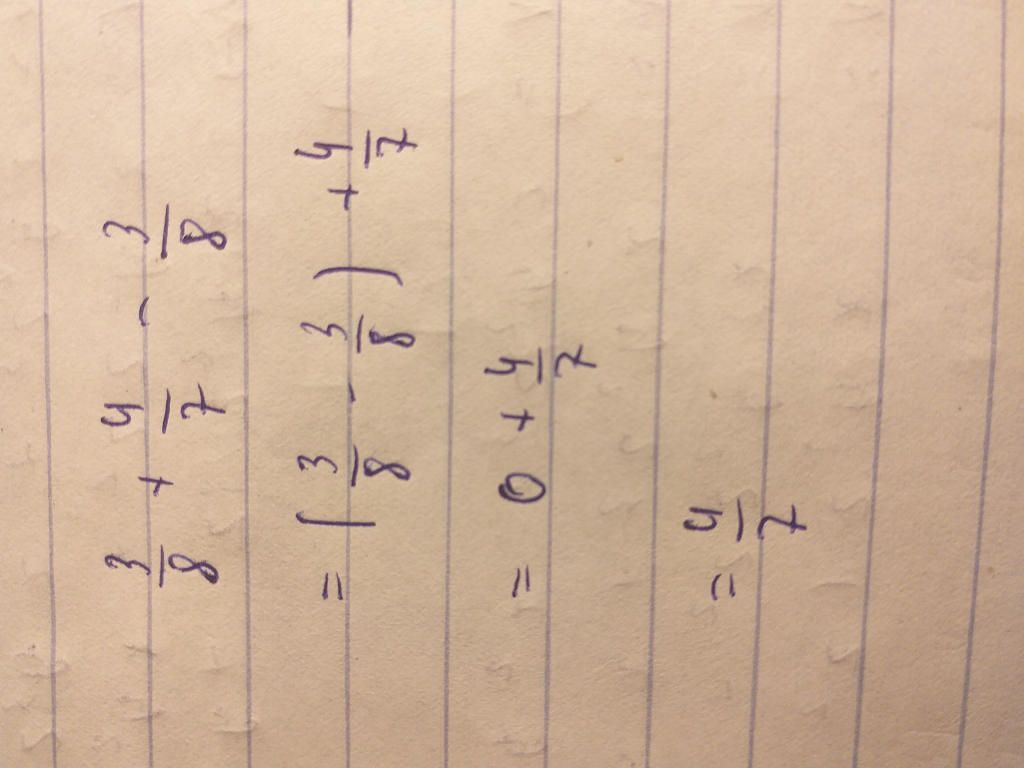 3/8 + 4/7 - 3/8
= (3/8 - 3/8) + 4/7
= 0 + 4/7
= 4/7